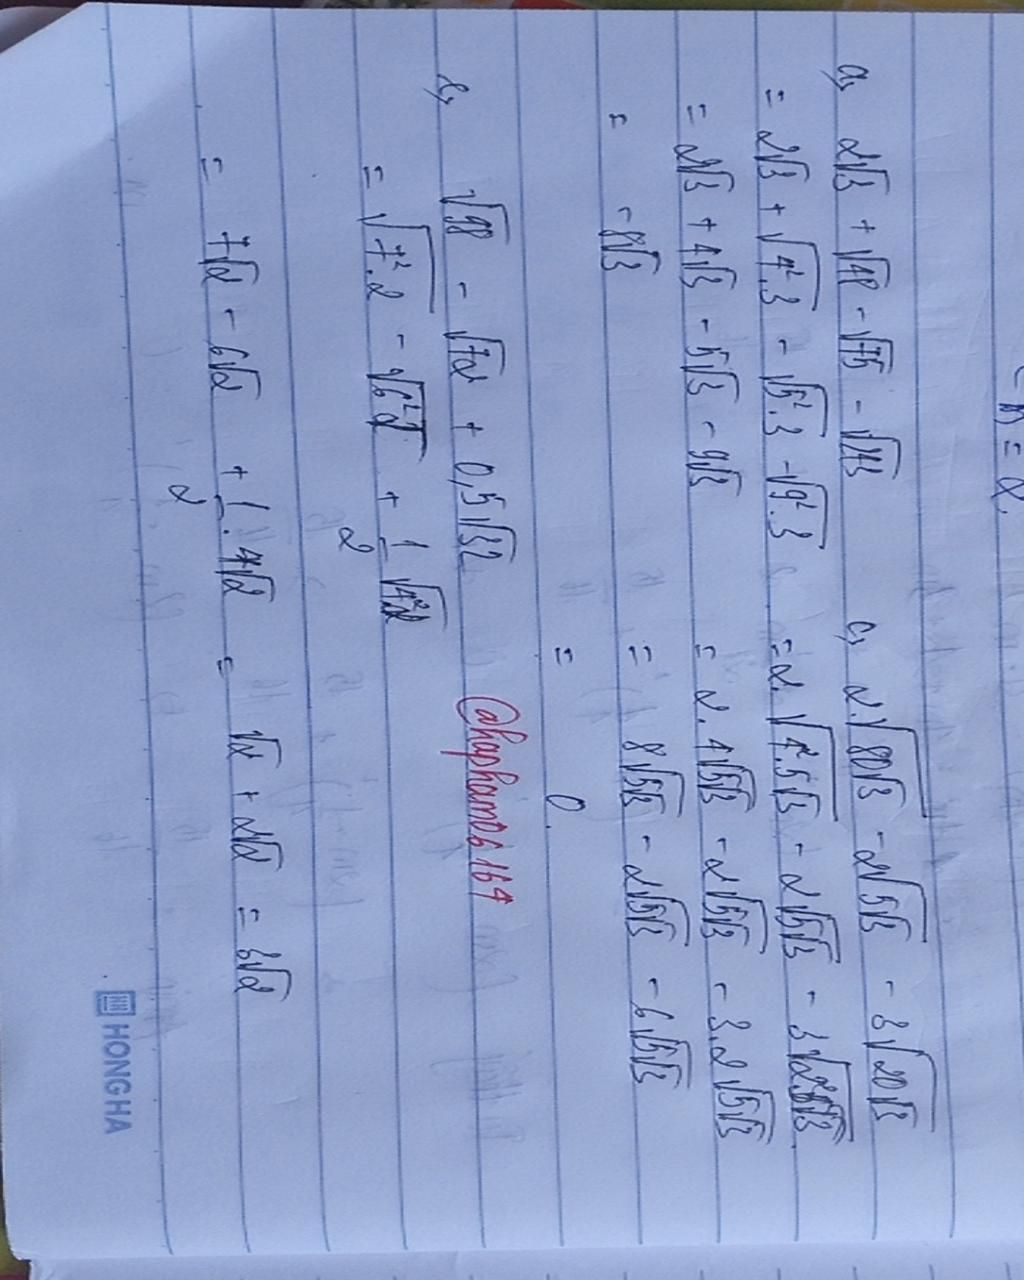 = 2.
a, 2√3 + √48 - √75 - √243
= 2√3 + √4².3 - √5².3 - √9².3
= 2√3 + 4√3 - 5√3 - 9√3
= -8√3
c, 2.√80√3 - 2√5√3 - 3√20√3
= 2.√4².5√3 - 2√5√3 - 3√2².5√3
= 2.4√5√3 - 2√5√3 - 3.2√5√3
= 8√5√3 - 2√5√3 - 6√5√3
= 0.
b, √98 - √72 + 0,5√32
= √7².2 - √6².2 + 1/2 √4².2
= 7√2 - 6√2 + 1/2 . 4√2 = √2 + 2√2 = 3√2
@hapham26164
HONG HA